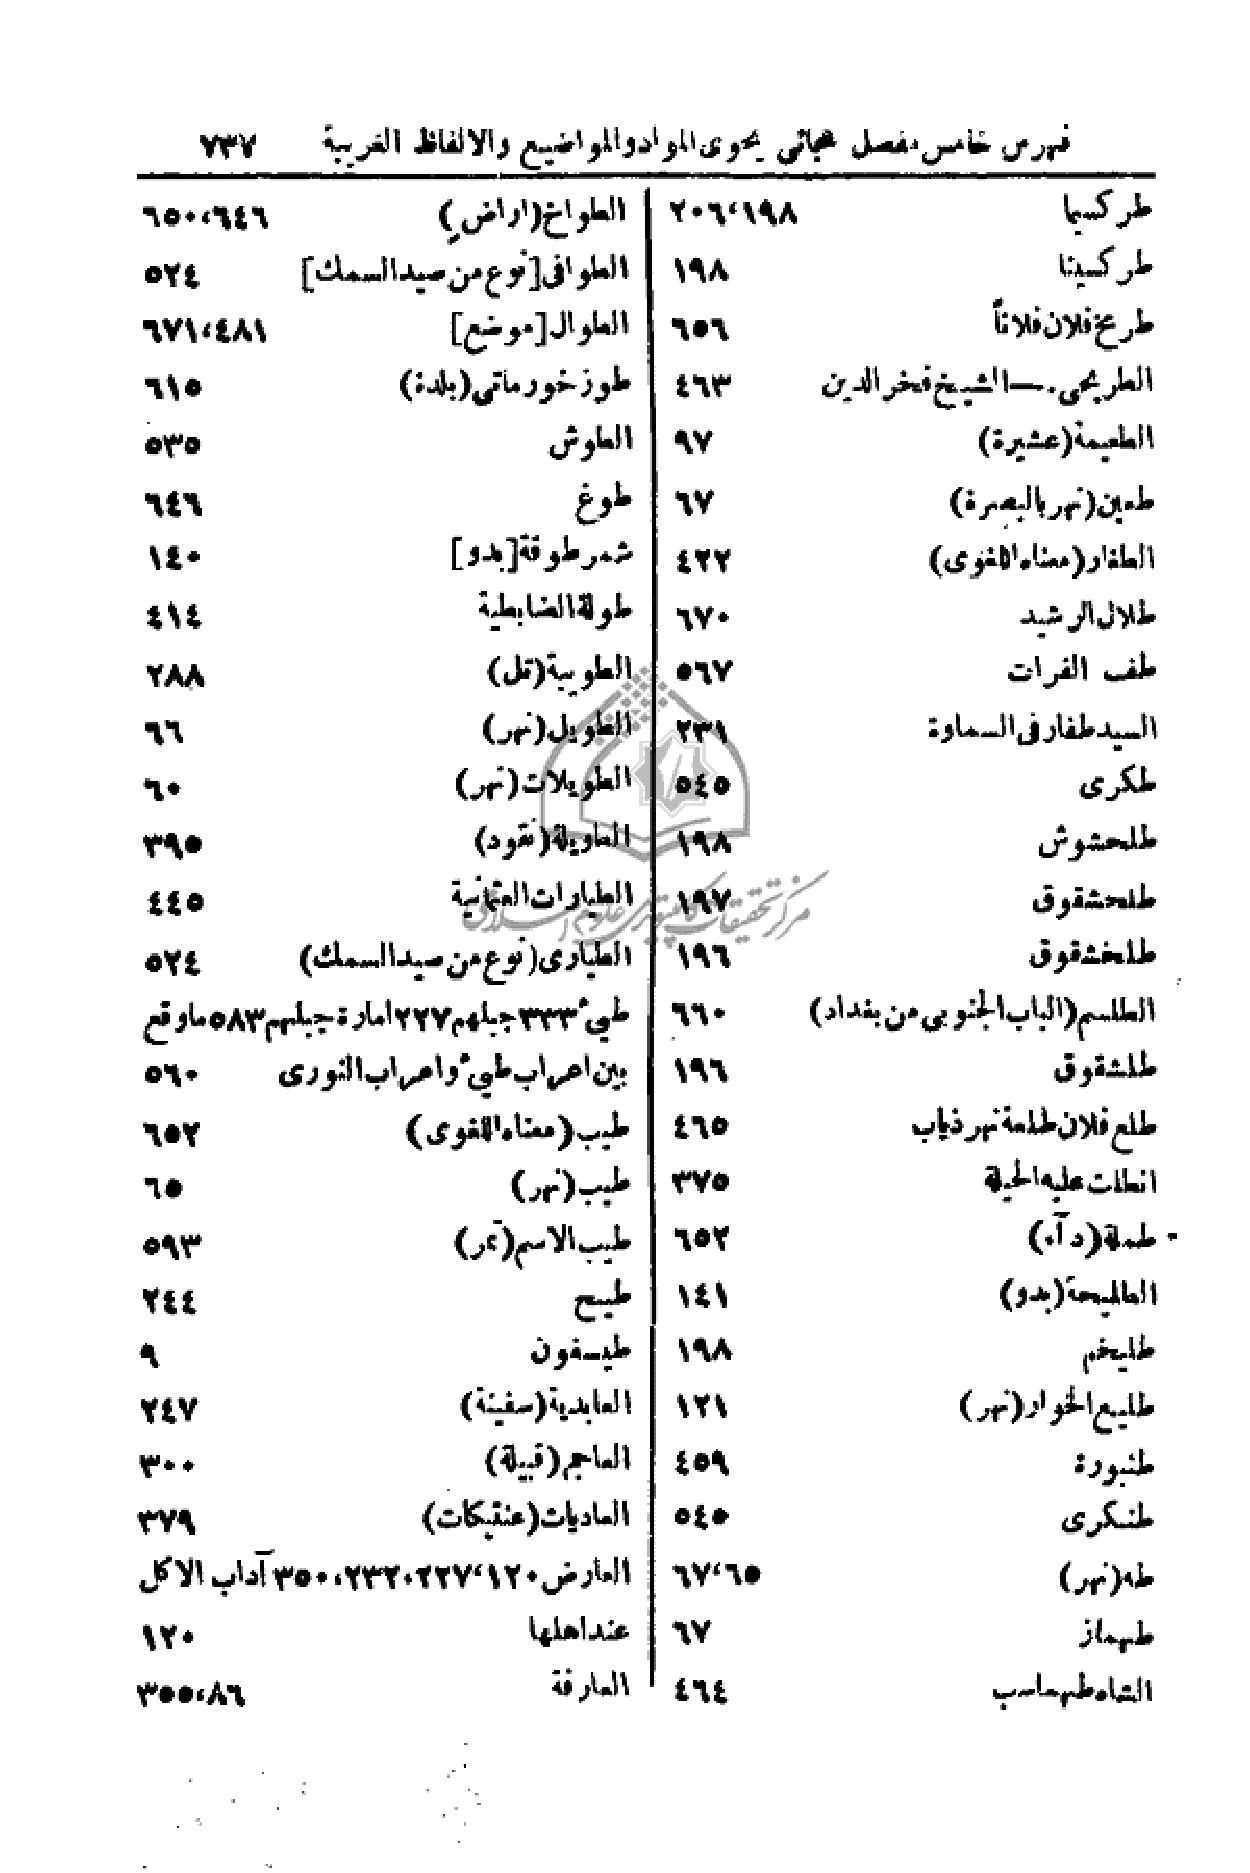 فهرس خامس مفصل هجائي يحوى المواد والمواضيع والالفاظ الغريبة ٧٣٧
طركسيا ١٩٨،٢٠٦
طركسيتا ١٩٨
طرع فلان فلاناً ٦٥٦
الطريحى . — الشيخ فخر الدين ٤٦٣
الطعيمة (عشيرة) ٩٧
طعين (نهر بالبصرة) ٦٧
الطفار (معناه اللغوى) ٤٢٢
طلال الرشيد ٦٧٠
طف الفرات ٥٦٧
السيد طفار فى السماوة ٢٣١
طكرى ٥٤٥
طلحشوش ١٩٨
طلحشقوق ١٩٧
طلخشقوق ١٩٦
الطلسم (الباب الجنوبى من بغداد) ٦٦٠
طلشقوق ١٩٦
طلع فلان طلعة نهر ذياب ٤٦٥
انطلت عليه الحيلة ٣٧٥
طملة (دآ.) ٦٥٢
الطليحة (بدو) ١٤١
طليخم ١٩٨
طليع الخوار (نهر) ١٢١
طنبورة ٤٥٩
طنكرى ٥٤٥
طه (نهر) ٦٥،٦٧
طهماز ٦٧
الشاه طهماسب ٤٦٤
الطواخ (اراضٍ) ٦٤٦،٦٥٠
الطوافى [نوع من صيد السمك] ٥٢٤
الطوال [موضع] ٤٨١،٦٧١
طوز خورماتى (بلدة) ٦١٥
الطوش ٥٣٥
طوغ ٦٤٦
شمر طوقة [بدو] ١٤٠
طولة الضابطية ٤١٤
الطويبة (تل) ٢٨٨
الطويل (نهر) ٦٦
الطويلات (نهر) ٦٠
الطويلة (نقود) ٣٩٥
الطيارات العثمانية ٤٤٥
الطيارى (نوع من صيد السمك) ٥٢٤
طيء ٣٣٣ جبلهم ٢٢٧ امارة جبلهم ٥٨٣ ما وقع
بين اعراب طيء واعراب النورى ٥٦٠
طيب (معناه اللغوى) ٦٥٢
طيب (نهر) ٦٥
طيب الاسم (تمر) ٥٩٣
طيبح ٢٤٤
طيسفون ٩
العابدية (سفينة) ٢٤٧
العاجم (قبيلة) ٣٠٠
العاديات (عنتيكات) ٣٧٩
العارض ١٢٠،٢٢٧،٢٣٢،٣٥٠ آداب الاكل
عند اهلها ١٢٠
العارفة ٨٦،٣٥٥
مركز تحقيقات كامپيوترى علوم اسلامى